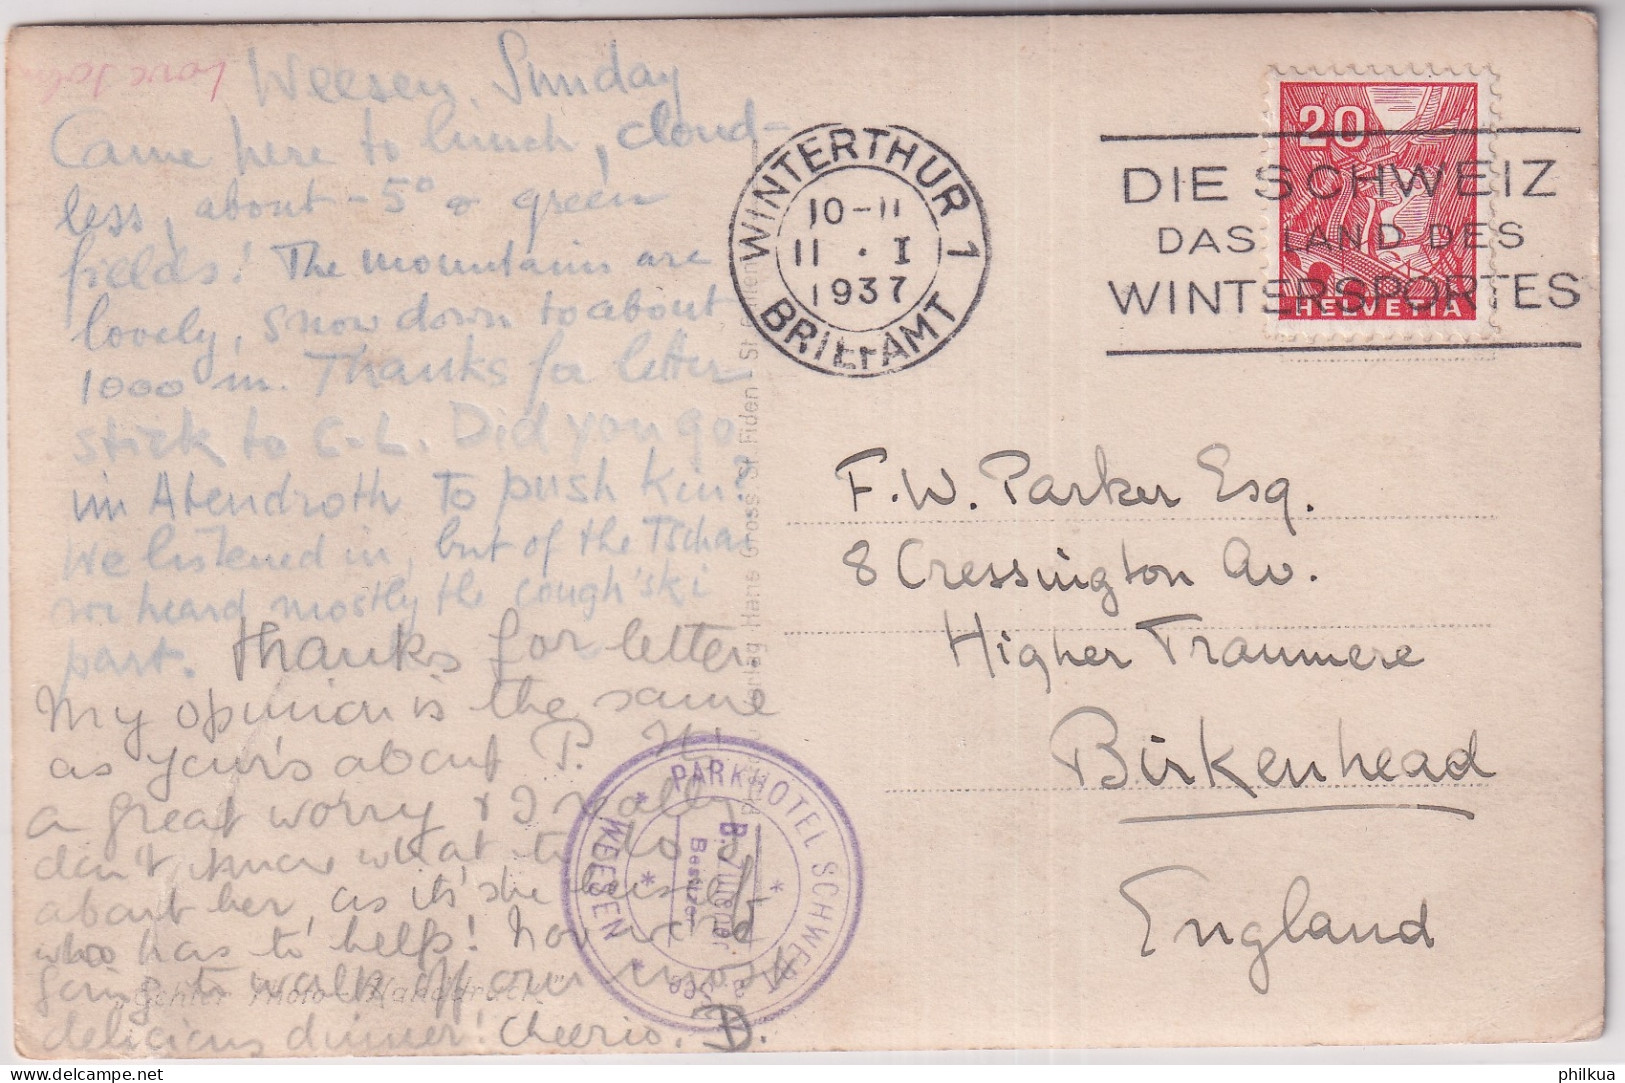 Love John
Weesen, Sunday
Came here to lunch, cloud-
less, about -5° & green
fields! The mountains are
lovely, snow down to about
1000 m. Thanks for letter
stick to C-L. Did you go
in Abendroth to push Kin?
We listened in, but of the Tschai
we heard mostly the cough'ski
part. Thanks for letter.
My opinion is the same
as your's about P. It's
a great worry & I really
don't know what to do
about her, as it's she herself
who has to help! Now we're
going to walk off our most
delicious dinner! Cheerio. D.
"Echter Photo-Handdruck"
Verlag Hans Gross St. Fiden St. Gallen
PARKHOTEL SCHWERT
WEESEN
a. See
Besitzer
WINTERTHUR 1
10-11
11 . I
1937
BRIEFAMT
DIE SCHWEIZ
DAS LAND DES
WINTERSPORTES
20
HELVETIA
F.W. Parker Esq.
8 Cressington Av.
Higher Tranmere
Birkenhead
England
philkua